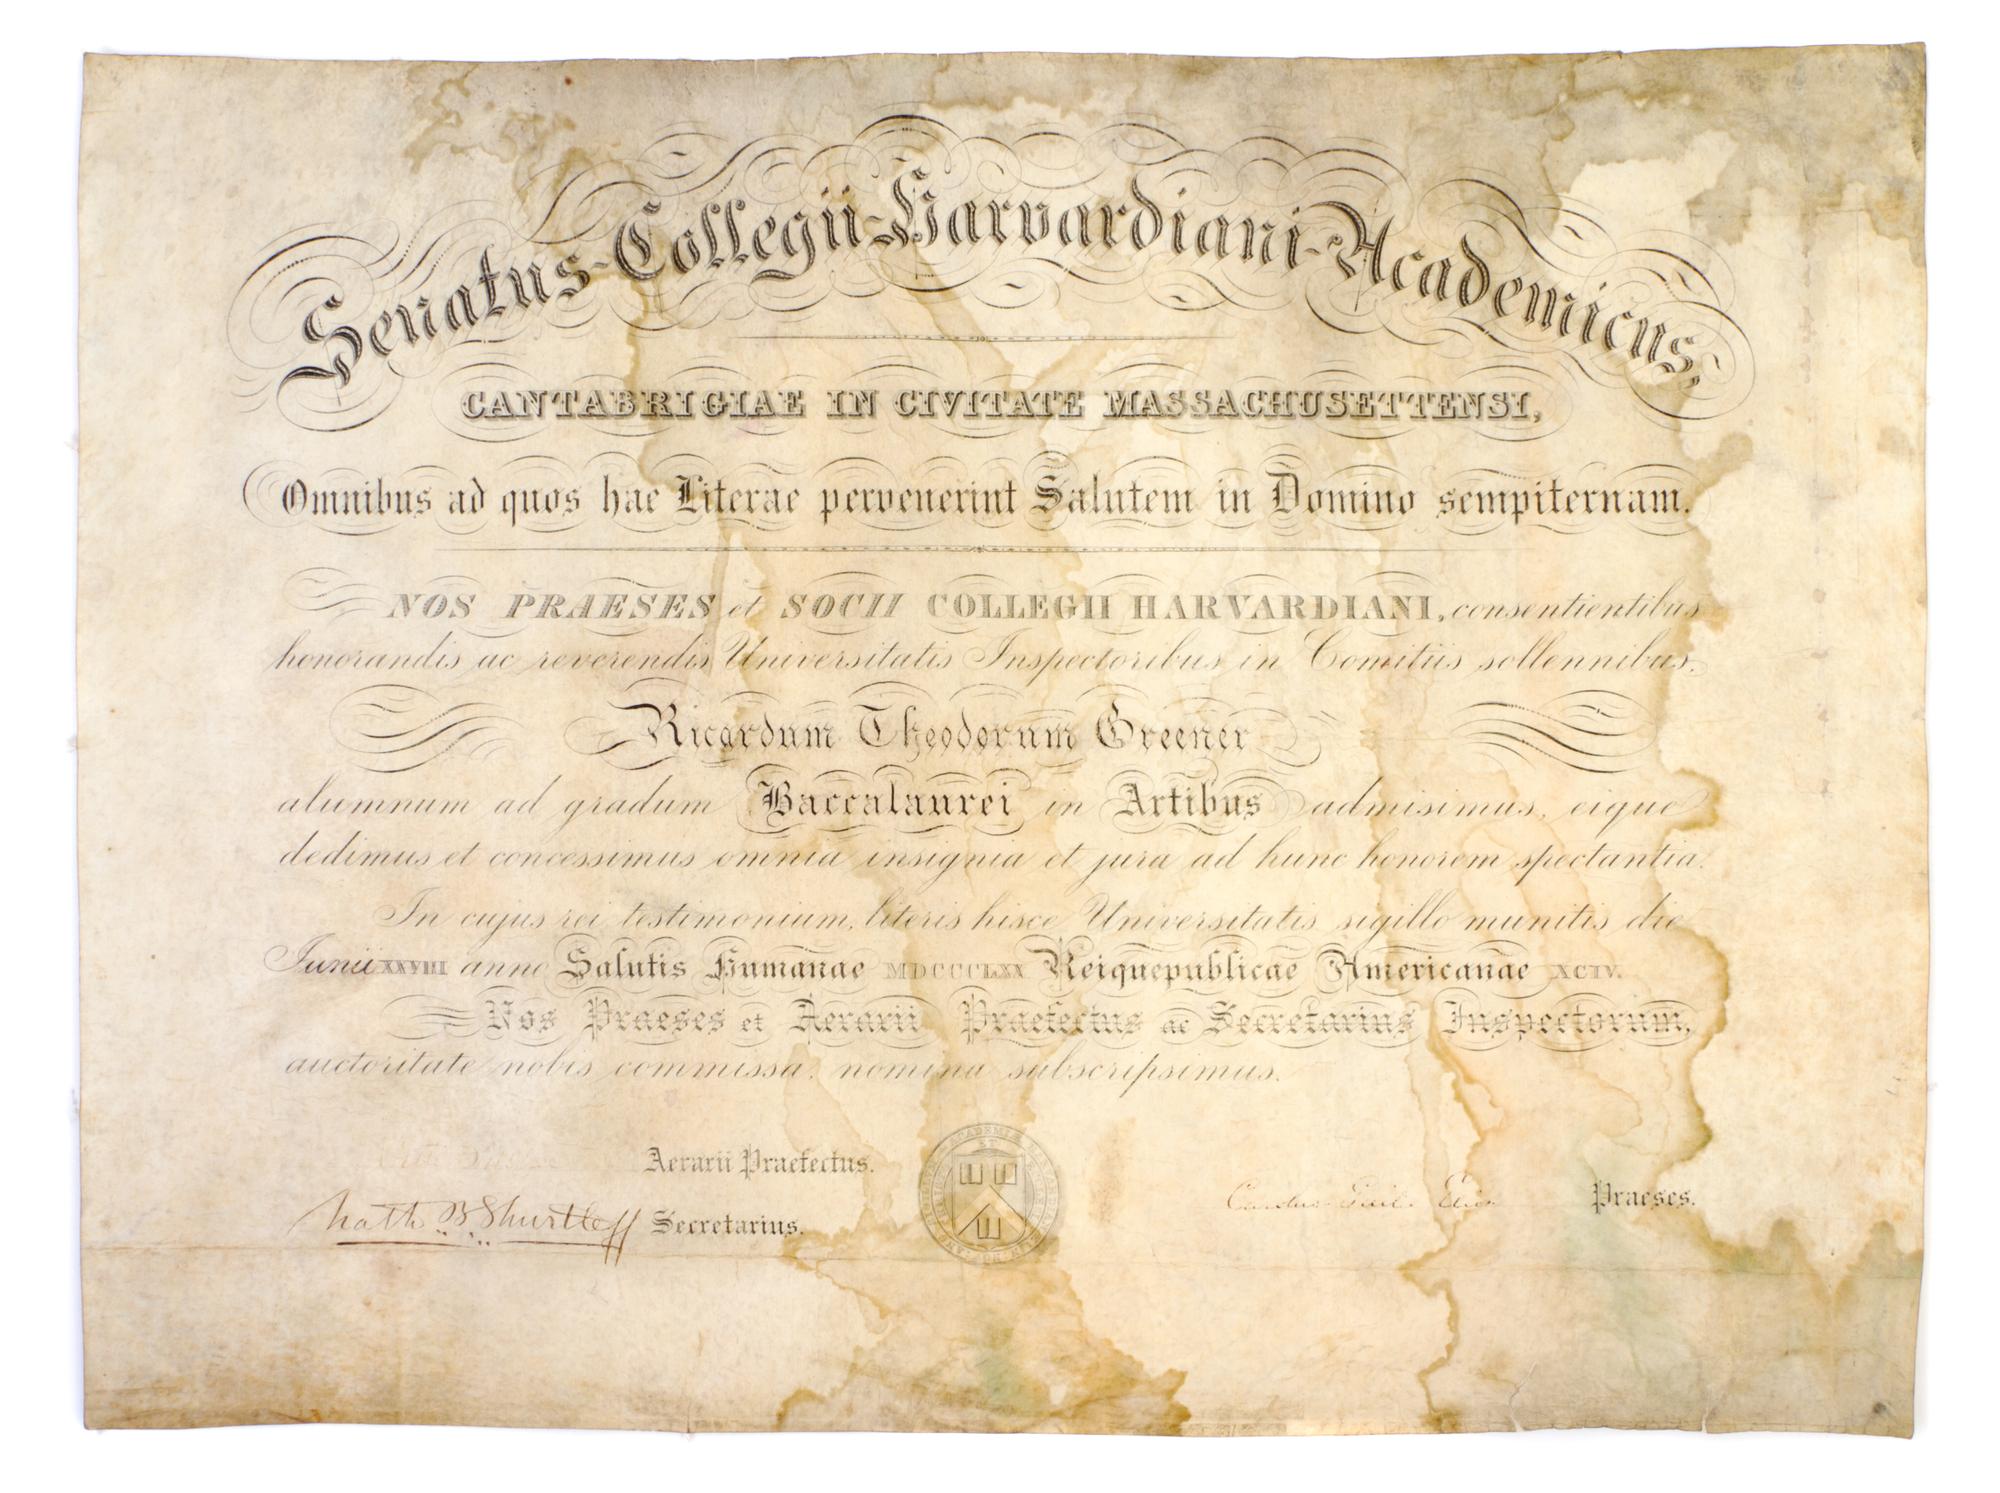 Senatus-Collegii-Harvardiani-Academicus,
CANTABRIGIAE IN CIVITATE MASSACHUSETTENSI,
Omnibus ad quos hae Literae pervenerint Salutem in Domino sempiternam.
NOS PRAESES et SOCII COLLEGII HARVARDIANI, consentientibus
honorandis ac reverendis Universitatis Inspectoribus in Comitiis sollennibus,
Ricardum Theodorum Greener
alumnum ad gradum Baccalaurei in Artibus admisimus, eique
dedimus et concessimus omnia insignia et jura ad hunc honorem spectantia.
In cujus rei testimonium, literis hisce Universitatis sigillo munitis die
Junii XXVIII anno Salutis Humanae MDCCCLXX Reiquepublicae Americanae XCIV.
Nos Praeses et Aerarii Praefectus ac Secretarius Inspectorum,
auctoritate nobis commissa, nomina subscripsimus.
Aerarii Praefectus.
Nath. B. Shurtleff Secretarius.
Carolus Guil. Eliot Praeses.